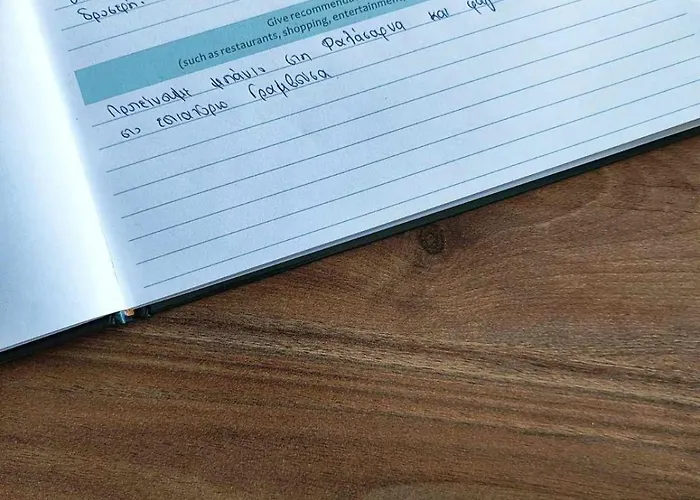 δροσερή.
Give recommenda
(such as restaurants, shopping, entertainment,
Προτείνουμε μπάνιο στη Φαλάσαρνα και φαγ
στο εστιατόριο Γραμβούσα